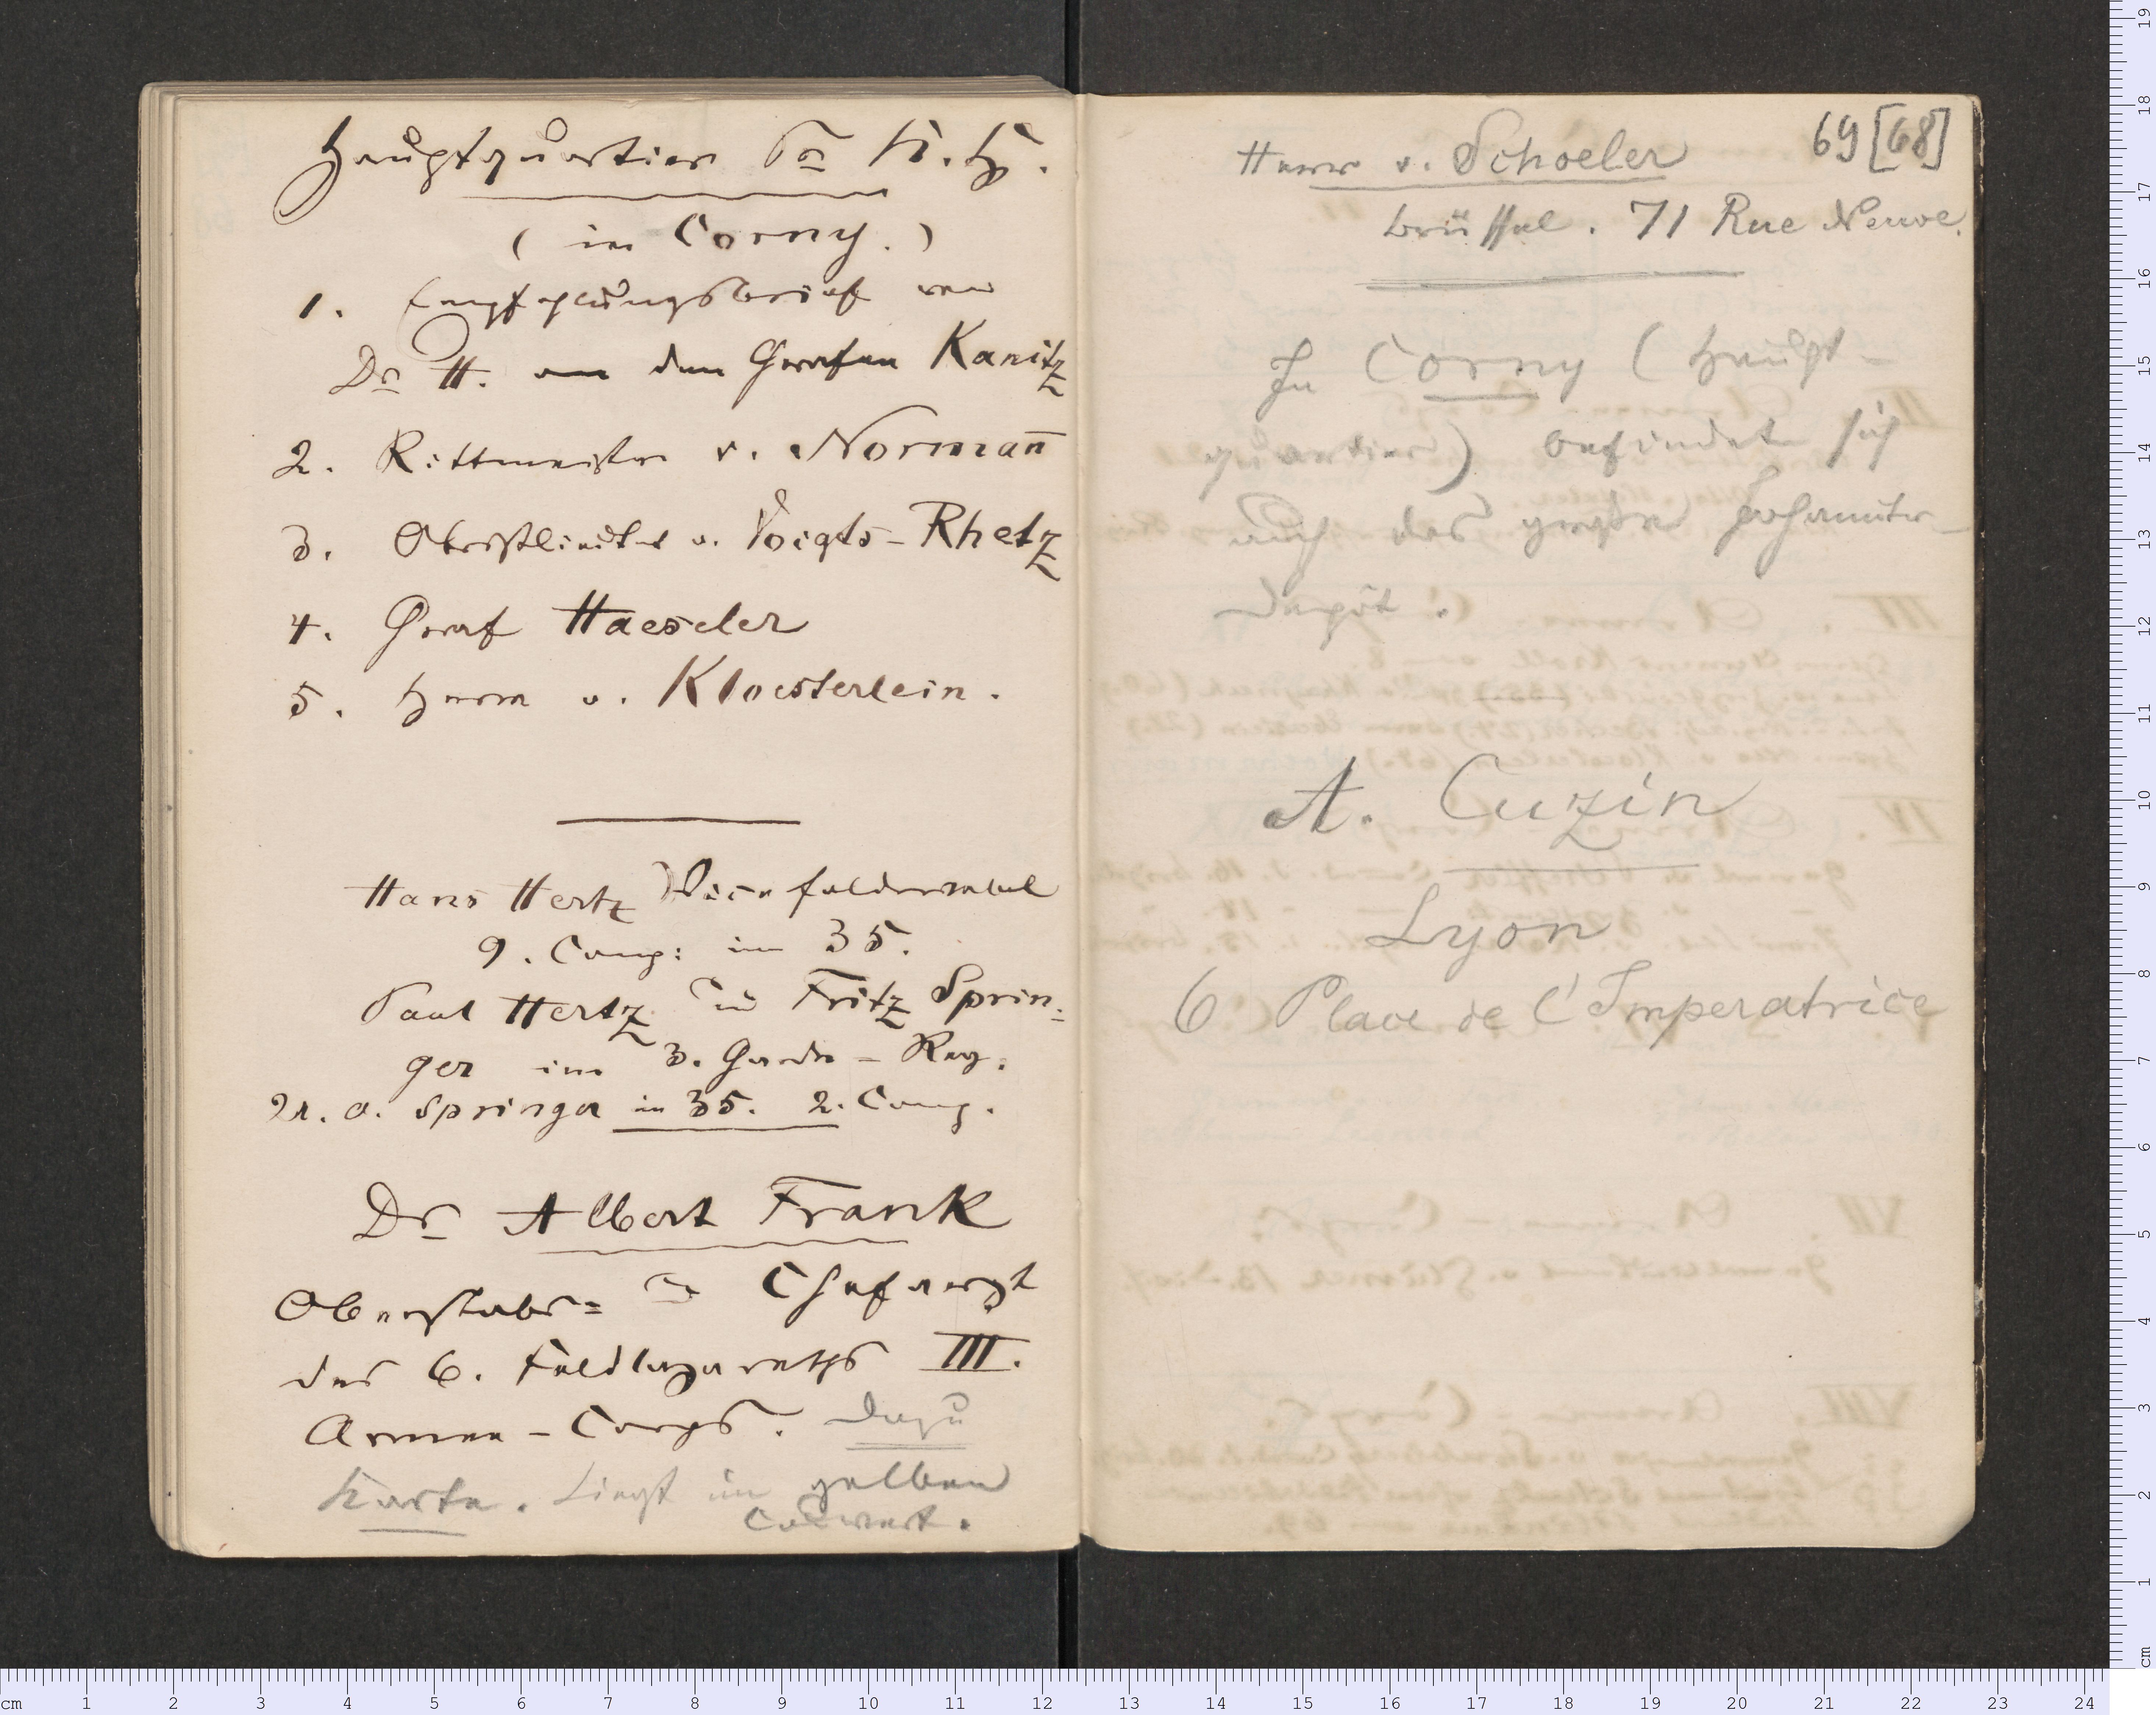 Hauptquartier Sr K. H.
(in Corny.)
1. Empfehlungsbrief von
Dr H. an den Grafen Kanitz
2. Rittmeister v. Normañ
3. Obristlieutnt v. Voigts-Rhetz
4. Graf Haeseler
5. Herrn v. Kloesterlein.
Hans Hertz Vicefeldwebel
9. Comp: im 35.
Paul Hertz u Fritz Sprin-
ger im 3. Garde-Reg.
A. Springer in 35. 2. Comp.
Dr Albert Frank
Oberstabs= u Chefarzt
des 6. Feldlazareths III.
Armee-Corps. Dazu
Karte. Liegt im gelben
Couvert.
69[68]
Herr v. Schoeler
Brüssel. 71 Rue Neuve.
In Corny (Haupt-
quartier) befindet sich
auch das große Johanniter-
Depôt.
A. Cuzin
Lyon
6 Place de l'Imperatrice